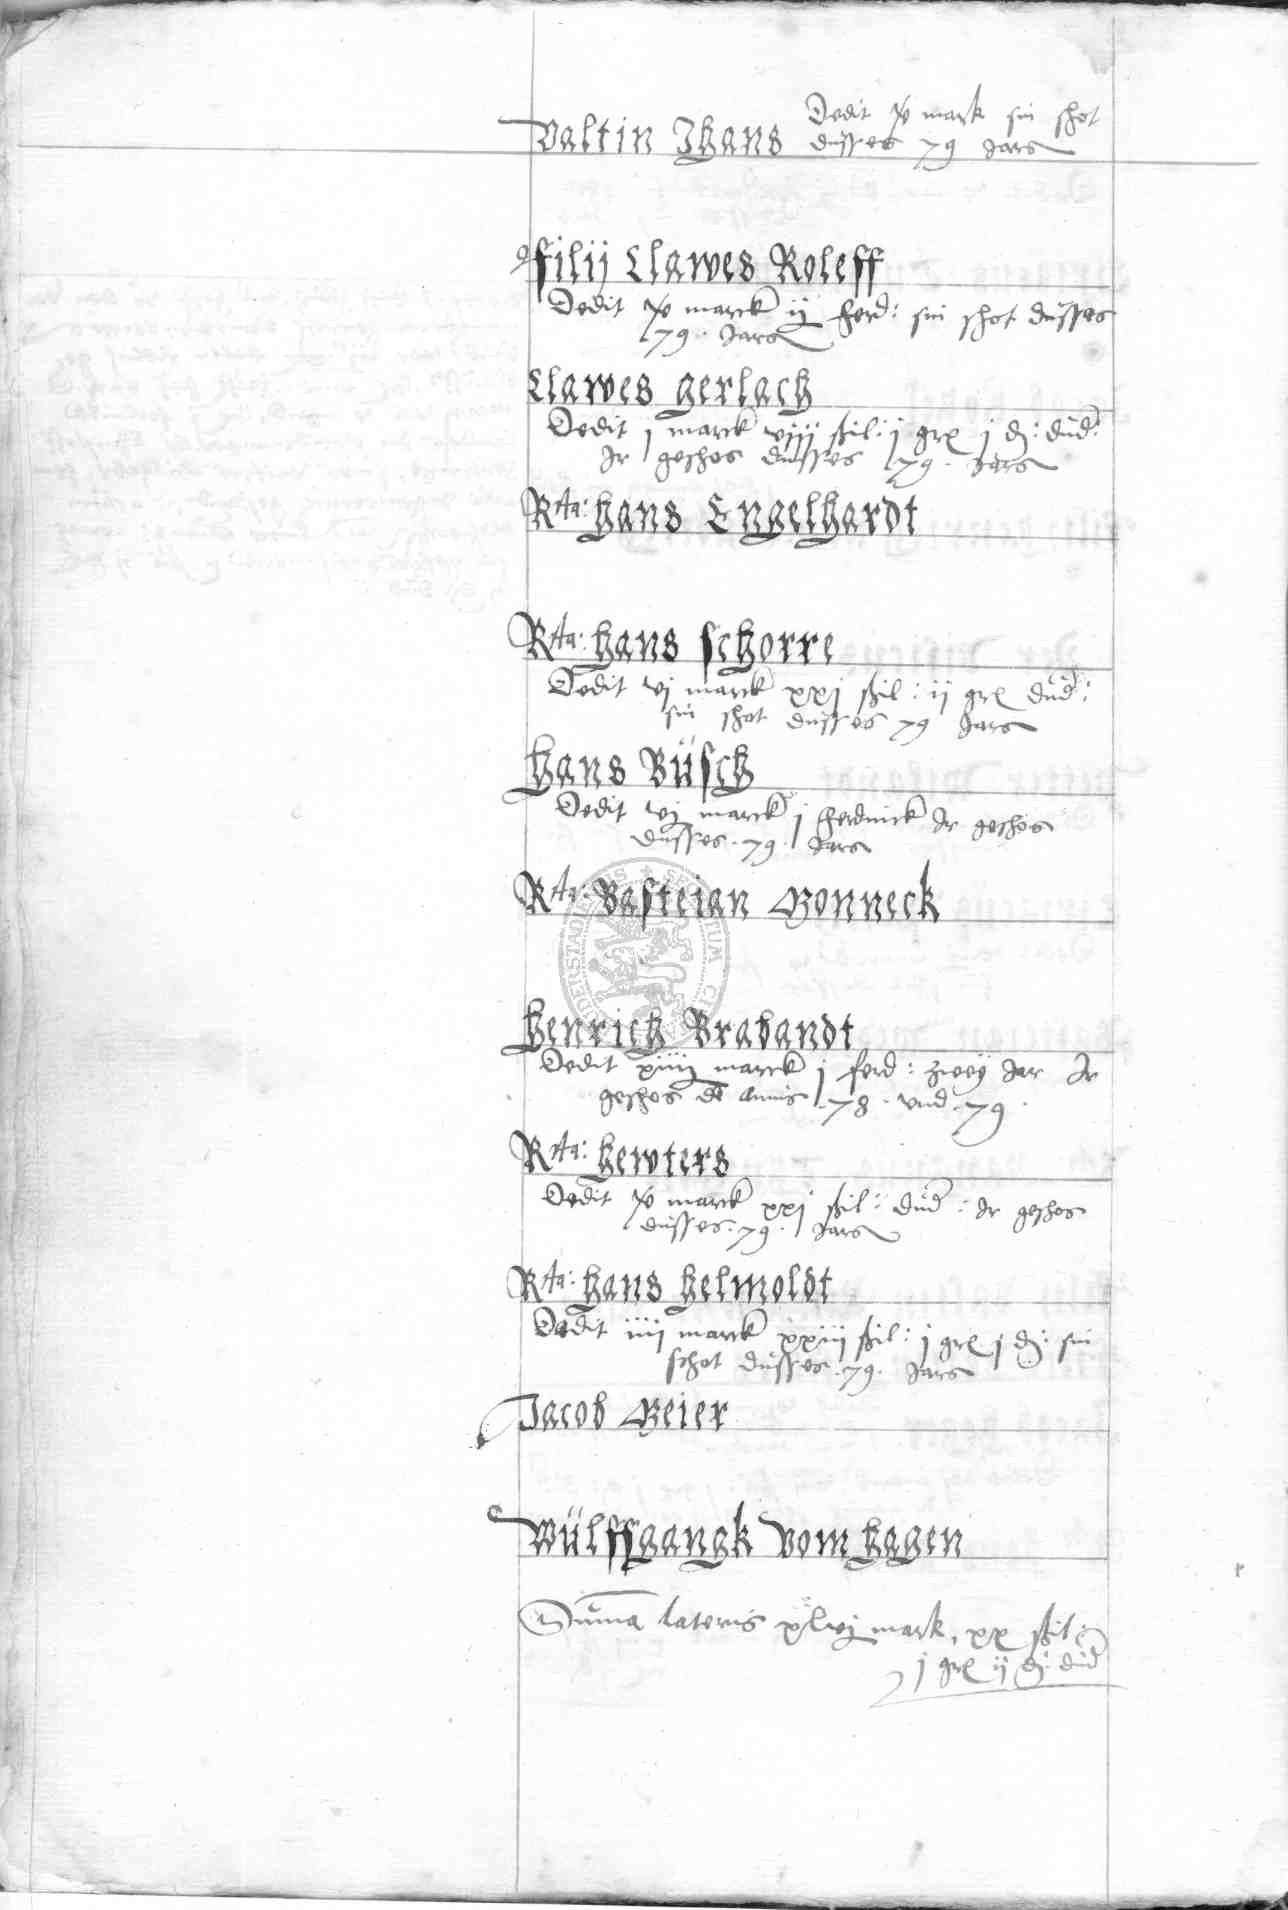 Valtin Jhans Dedit v mark sin schot
dusses 79 Jars
filij Clawes Roleff
Dedit v marck ij ferd: sin schot dusses
79. Jars
Clawes gerlach
Dedit j marck viij ßil: j gr j d: dud:
Ir geschos dusses 79. Jars
Rta: hans Engelhardt
Rta: hans schorre
Dedit vj marck xxj ßil: ij gr dud:
sin schot dusses 79 Jars
hans Büsch
Dedit vj marck j ferdinck Ir geschos
dusses. 79. Jars
Rta: Basteian Gonneck
SECRETUM
henrich Brabandt
Dedit xiiij marck j ferd: zwey Jar Ir
geschos de Annis .78. vnd .79.
Rta: hewters
Dedit v marck xxj ßil: dud: Ir geschos
dusses. 79. Jars
Rta: hans helmoldt
Dedit iiij marck xxiij ßil: j gr j d: sin
schot dusses .79. Jars
Jacob Geier
Wülffgangk vom hagen
Suma lateris xlvj mark, xx ßil:
j gr ij d: dud